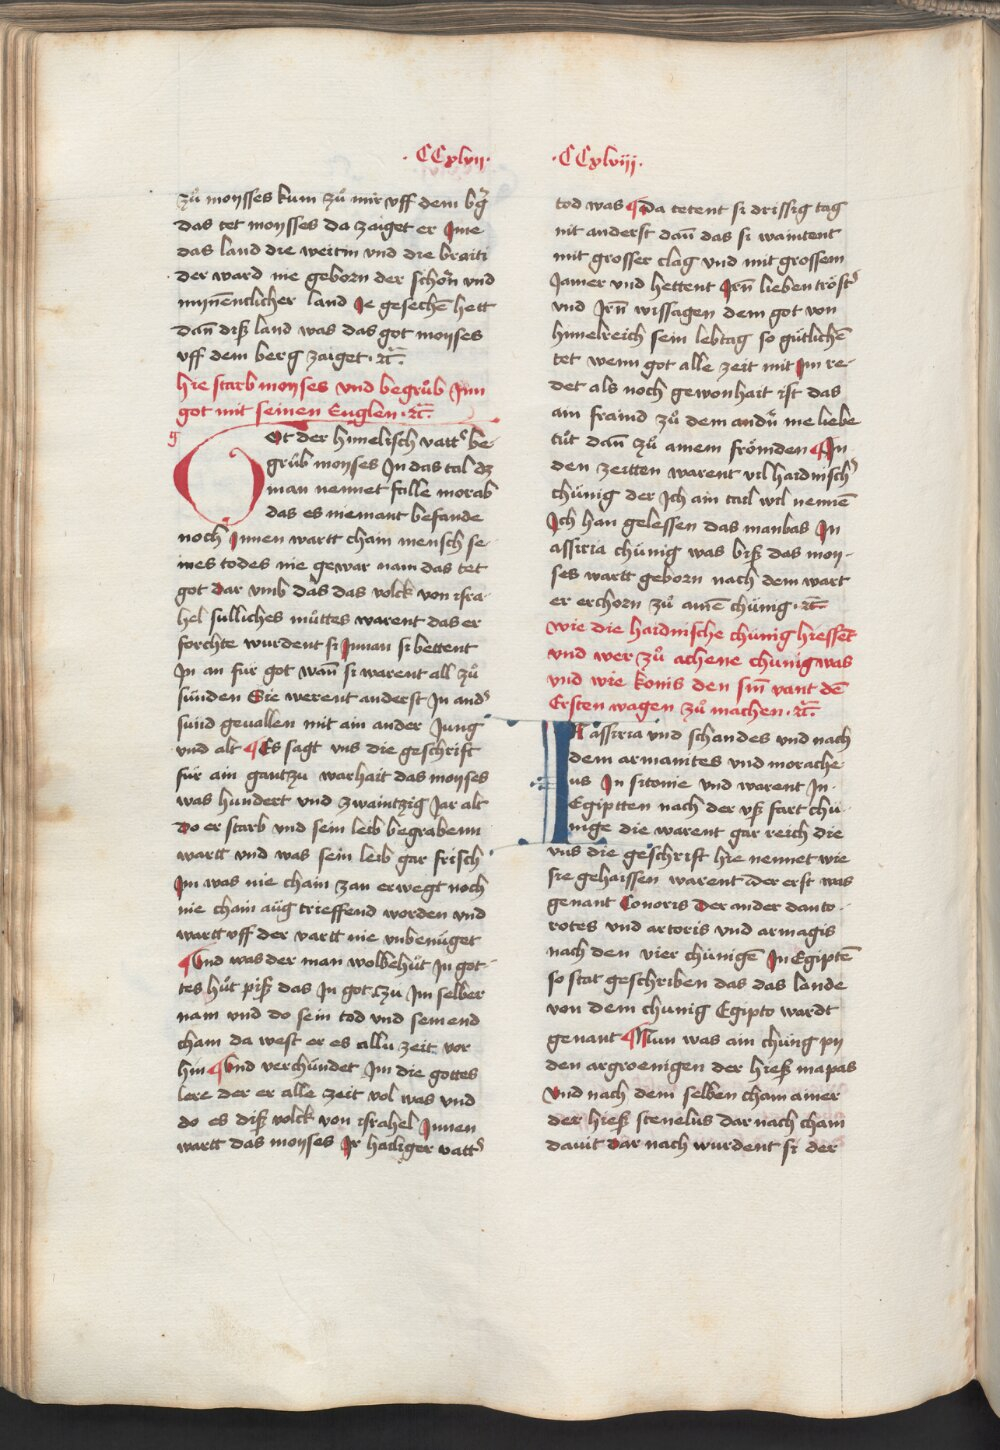 · CCxlvii ·
zů moysses kum zů mir vff dem bg̃
das tet moysses da zaiget er Jme
das land die weitin vnd die braiti
der ward nie geborn der schoñ vnd
mynẽnclicher land Je gesechẽ hett
dañ diß land was das got moyses
vff dem berg zaiget · ꝛc̃
hie starb moyses vnd begrůb Jnn
got mit seinen Englen · ꝛc̃
g
Ot der himelisch vattˀ be-
grůb moyses Jn das tal dz
man nennet fille morab
das es niemant befande
noch Jnnen wartt chain mensch se-
ines todes nie gewar nam das tet
got dar vmb das das volck von isra-
hel sulliches můttes warent das er
forchte wurdent si Jnnan si bettent
Jn an für got wañ si warent all zů
sünden Sie werent anderst Jn andˀ
sünd geuallen mit ain ander Jung
vnd alt ¶ Es sagt vns die geschrift
für ain gantzu warhait das moyses
was hundert vnd zwaintzig Jar alt
Do er starb vnd sein leib begrabenn
wartt vnd was sein leib gar frisch
Jm was nie chain zan erwegt noch
nie chain aüg trieffend worden vnd
wartt vff der vartt nie vnbenüget
¶ Vnd was der man wolbehüt Jn got-
tes hůt piß das Jn got zu Jm selber
nam vnd do sein tod vnd sein end
cham da west er es allu zeit vor
hin ¶ Vnd verchündet Jm die gottes
lere der er alle zeit vol was vnd
do es diß volck von israhel Jnnen
wartt das moyses Jr hailiger vattˀ
· CCxlviii ·
tod was ¶ Da tetent si drissig tag
nit anderst dañ das si waintent
mit grosser clag vnd mit grossem
Jamer vnd hettent Jrñ lieben tröstˀ
vnd Jrñ wissagen dem got von
himelreich sein lebtag so gütlichẽ
tet wenn got alle zeit mit Jm re-
det als noch gewonhait ist das
ain fraind zů dem andñ me liebe
tůt dañ zů ainem frömden ¶ Jn
den zeitten warent vil haidnischˀ
chünig der Jch ain tail wil nennẽ
Jch han gelessen das manbas Jn
assiria chünig was biß das moy-
ses wartt geborn nach dem wart
er erchorn zů ainẽ chünig · ꝛc̃
wie die haidnische chünig hiessẽt
vnd wer zů achene chünig was
vnd wie konis den sin̄ vant dẽ
Ersten wagen zů machen · ꝛc̃
IN assiria vnd schandes vnd nach
dem armanites vnd morache
us Jn sitonie vnd warent Jn
Egiptten nach der vß fart chü-
nige die warent gar reich die
vns die geschrift hie nennet wie
sie gehaissen warent Der erst was
genant Conoris Der ander danto-
rotes vnd artoris vnd armagis
nach den vier chünigẽ Jn Egiptẽ
so stat geschriben das das lande
von dem chunig Egipto wardt
genant ¶ Nun was ain chüng py
den argroenigen der hieß mapas
Vnd nach dem selben cham ainer
der hieß stenelus dar nach cham
dauit Dar nach wurdent si der